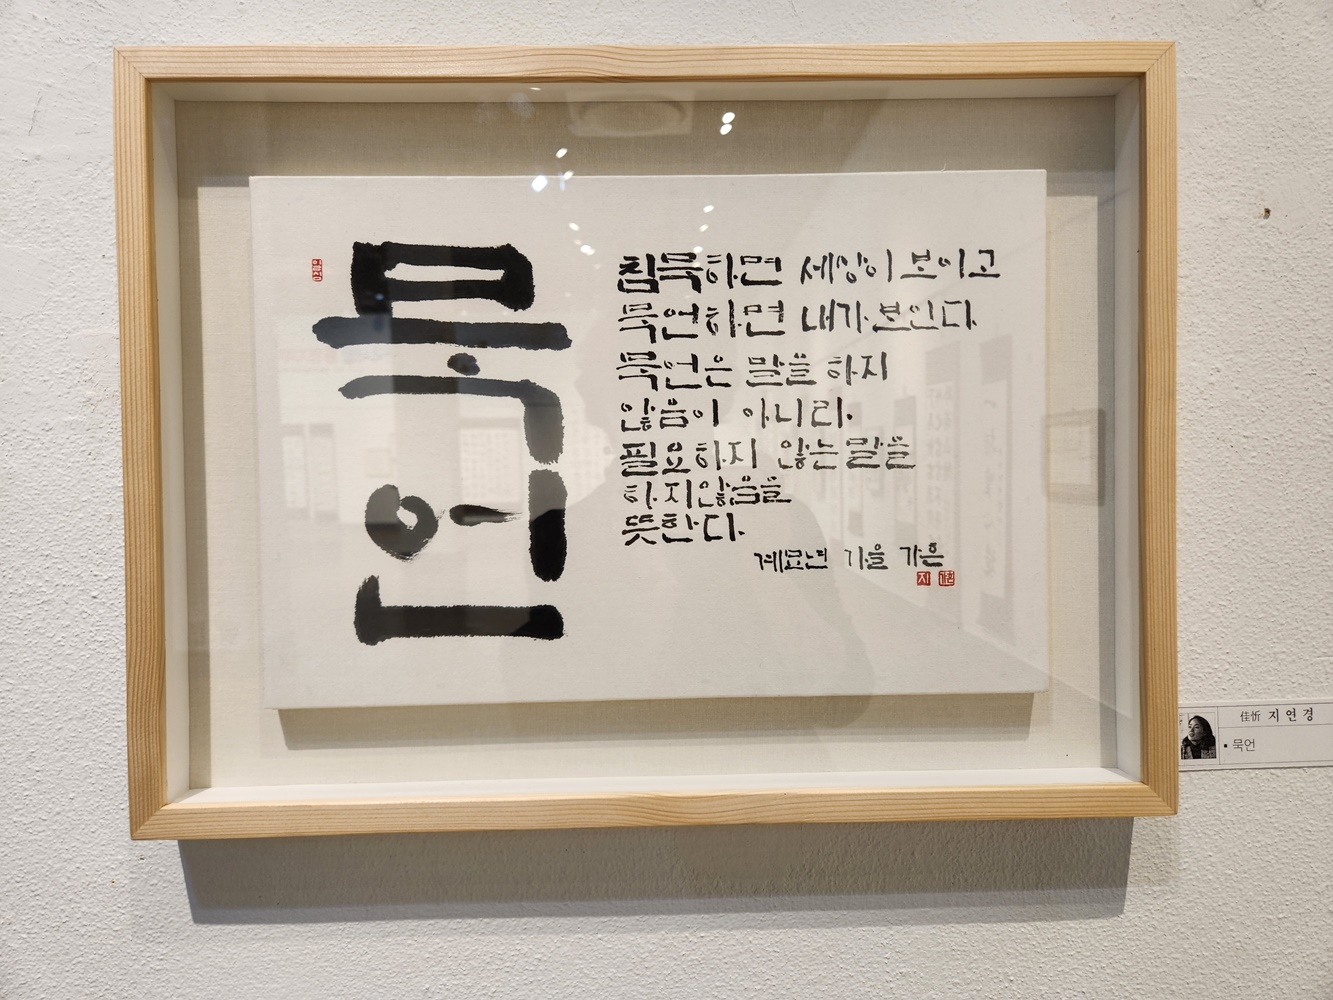 묵언
침묵하면 세상이 보이고
묵언하면 내가 보인다
묵언은 말을 하지
않음이 아니라
필요하지 않는 말을
하지않음을
뜻한다
계묘년 가을 가흔
佳忻 지연경
▪ 묵언